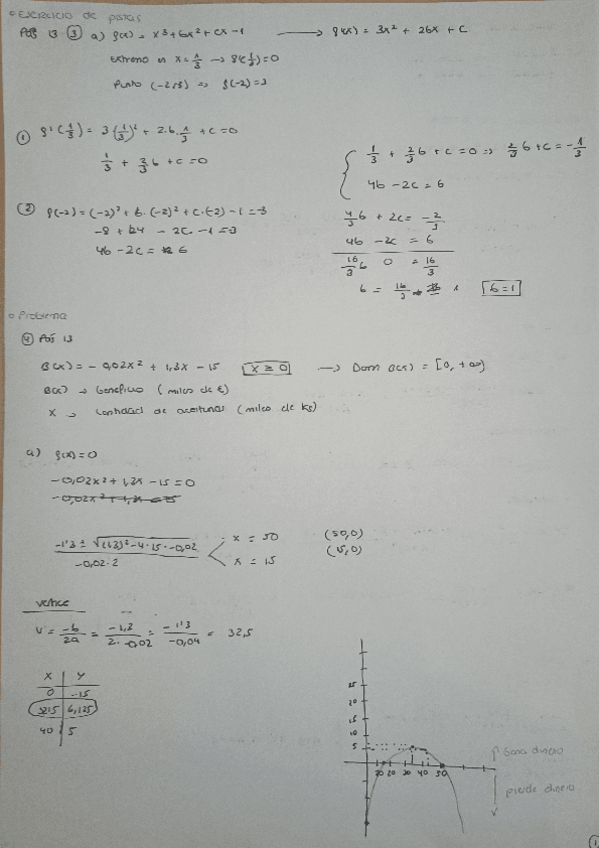 o Ejercicio de pistas
Pág 13 ③ a) f(x) = x³ + bx² + cx - 1 → f'(x) = 3x² + 2bx + c
Extremo en x = 1/3 → f'(1/3) = 0
Punto (-2,3) ⇒ f(-2) = 3
① f'(1/3) = 3(1/3)² + 2·b·1/3 + c = 0
1/3 + 2/3 b + c = 0
② f(-2) = (-2)³ + b·(-2)² + c·(-2) - 1 = 3
-8 + b4 - 2c - 1 = 3
4b - 2c = 6
{ 1/3 + 2/3 b + c = 0 ⇒ 2/3 b + c = -1/3
4b - 2c = 6
4/3 b + 2c = -2/3
4b - 2c = 6
16/3 b 0 = 16/3
b = 16/3 1 b = 1
o Problema
④ Pág 13
B(x) = -0,02x² + 1,3x - 15 x ≥ 0 → Dom B(x) = [0, +∞)
B(x) → beneficio (miles de €)
x → cantidad de aceitunas (miles de kg)
a) f(x) = 0
-0,02x² + 1,3x - 15 = 0
-0,02x² + 1,3x = 15
-1'3 ± √(1,3)² - 4·15·-0,02 / -0,02·2 x = 50 (50,0)
x = 15 (15,0)
vertice
V = -b/2a = -1,3/2·-0,02 = -1'3/-0,04 = 32,5
x y
0 -15
32,5 6,125
40 5
25
20
15
10
5
10 20 30 40 50
↑ Gana dinero
pierde dinero
↓
1